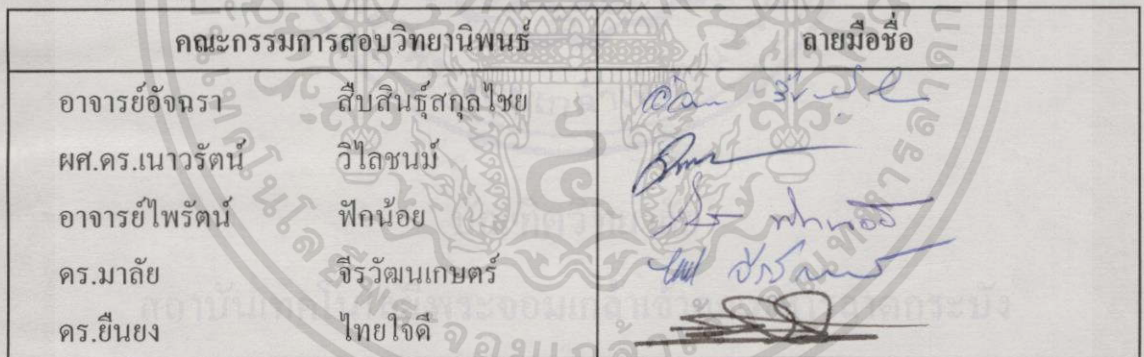 คณะกรรมการสอบวิทยานิพนธ์ ลายมือชื่อ
อาจารย์อัจฉรา สืบสินธุ์สกุลไชย
ผศ.ดร.เนาวรัตน์ วิไลชนม์
อาจารย์ไพรัตน์ ฟักน้อย
ดร.มาลัย จีรวัฒนเกษตร์
ดร.ยืนยง ไทยใจดี